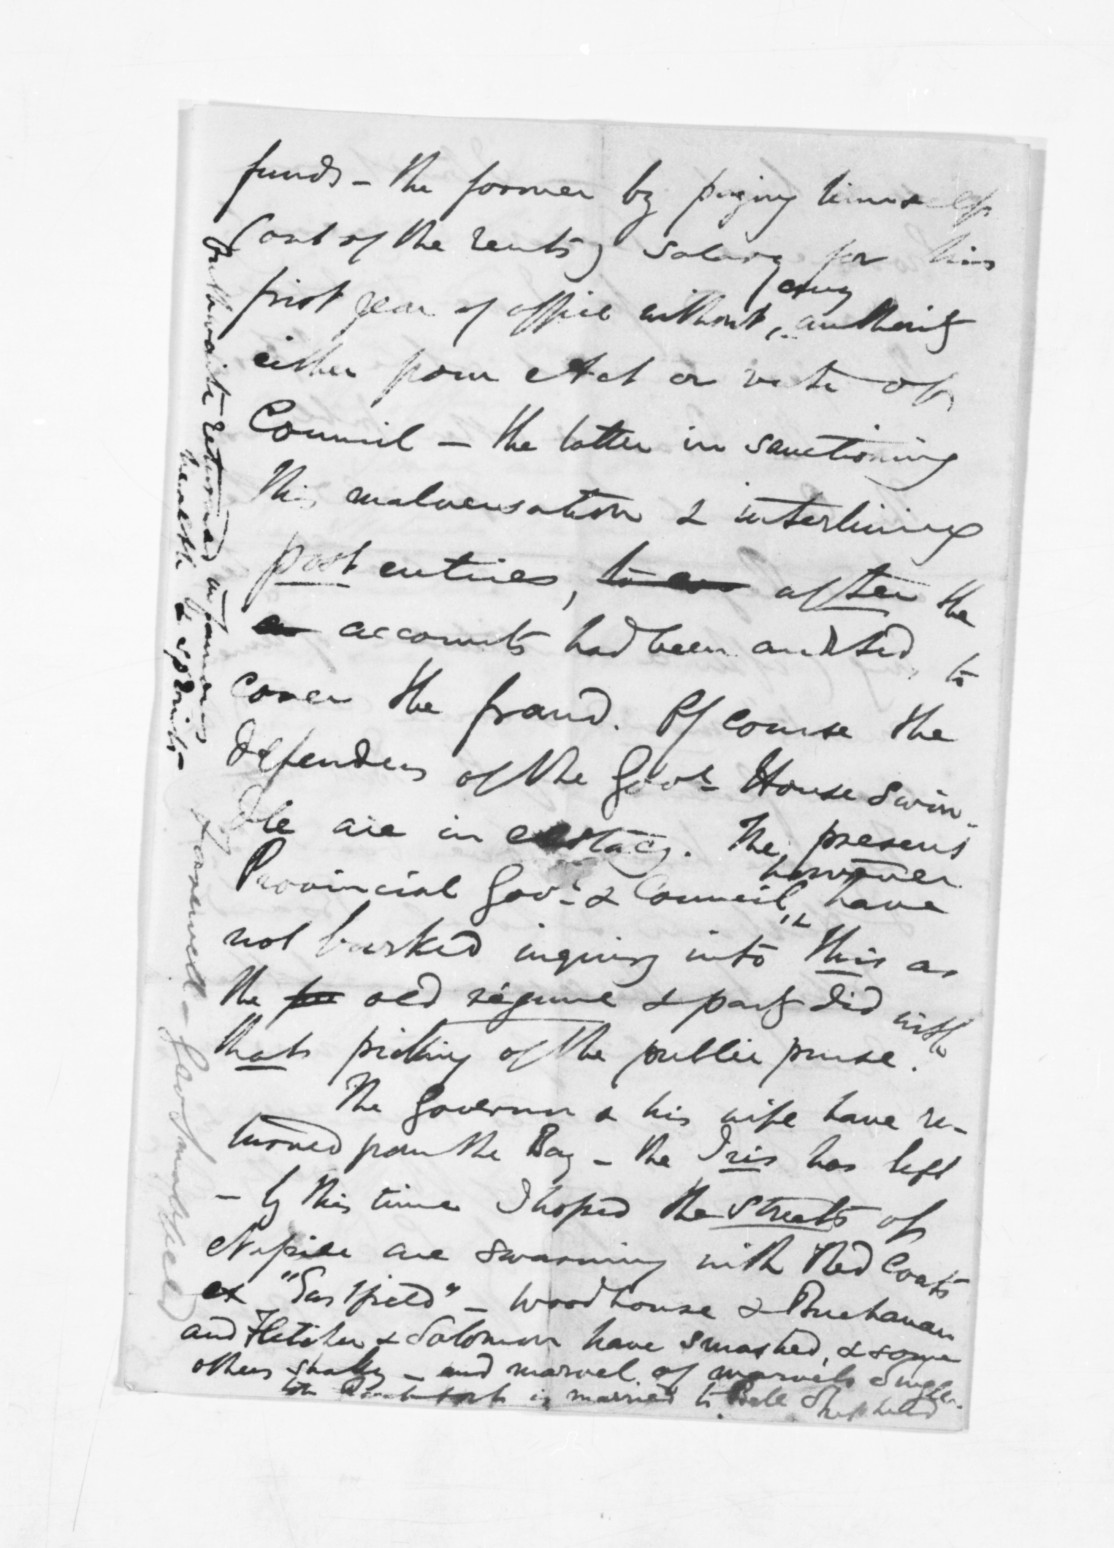 funds - the former by paying himself
out of the rents, salary for his
any
first year of office without, authority
either from Act or vote of
Council - the latter in sanctioning
this malversation & interlining
post entries, to co after the
accounts had been audited, to
cover the fraud. Of course the
defenders of the Govt. House Swin-
dle are in ecstacy. The present
however
Provincial Govt. & Council, have
not burked inquiry into this as
the old régime & party did with
that picking of the public purse.
The Governor & his wife have re-
turned from the Bay - the Iris has left
- by this time I hoped the streets of
Napier are swarming with Red Coats
ex "Eastfield" - Woodhouse & Buchanan
and Fletcher & Salomon have smashed, & some
others shaky - and marvel of marvels Single-
ton is married to Bell Shepherd
Outhwaite returned in famous
health & spirits -
Farewell - Geo Smales